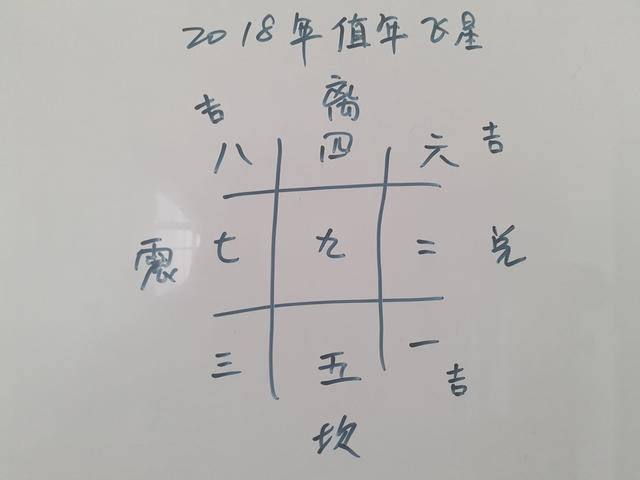 2018年值年飞星
吉 离
八 四 六 吉
震 七 九 二 兑
三 五 一
吉
坎